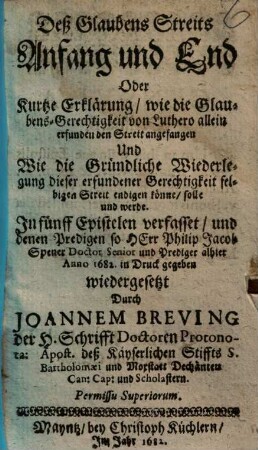 6
Deß Glaubens Streits
Anfang und End
Oder
Kurtze Erklärung / wie die Glau-
bens-Gerechtigkeit von Luthero allein
erfunden den Streit angefangen
Und
Wie die Gründliche Wiederle-
gung dieser erfundener Gerechtigkeit sel-
bigen Streit endigen könne / solle
und werde.
In fünff Epistelen verfasset / und
denen Predigen so HErr Philip Jacob
Spener Doctor, Senior und Prediger alhier
Anno 1682. in Druck gegeben
wiedergesetzt
Durch
JOANNEM BREVING
der H. Schrifft Doctorēn Protono-
ta: Apost. deß Käyserlichen Stiffts S.
Bartholomæi und Mopstatt Dechanten
Cant Capt und Scholastern.
Permissu Superiorum.
Mayntz / bey Christoph Küchlern /
Im Jahr 1682.